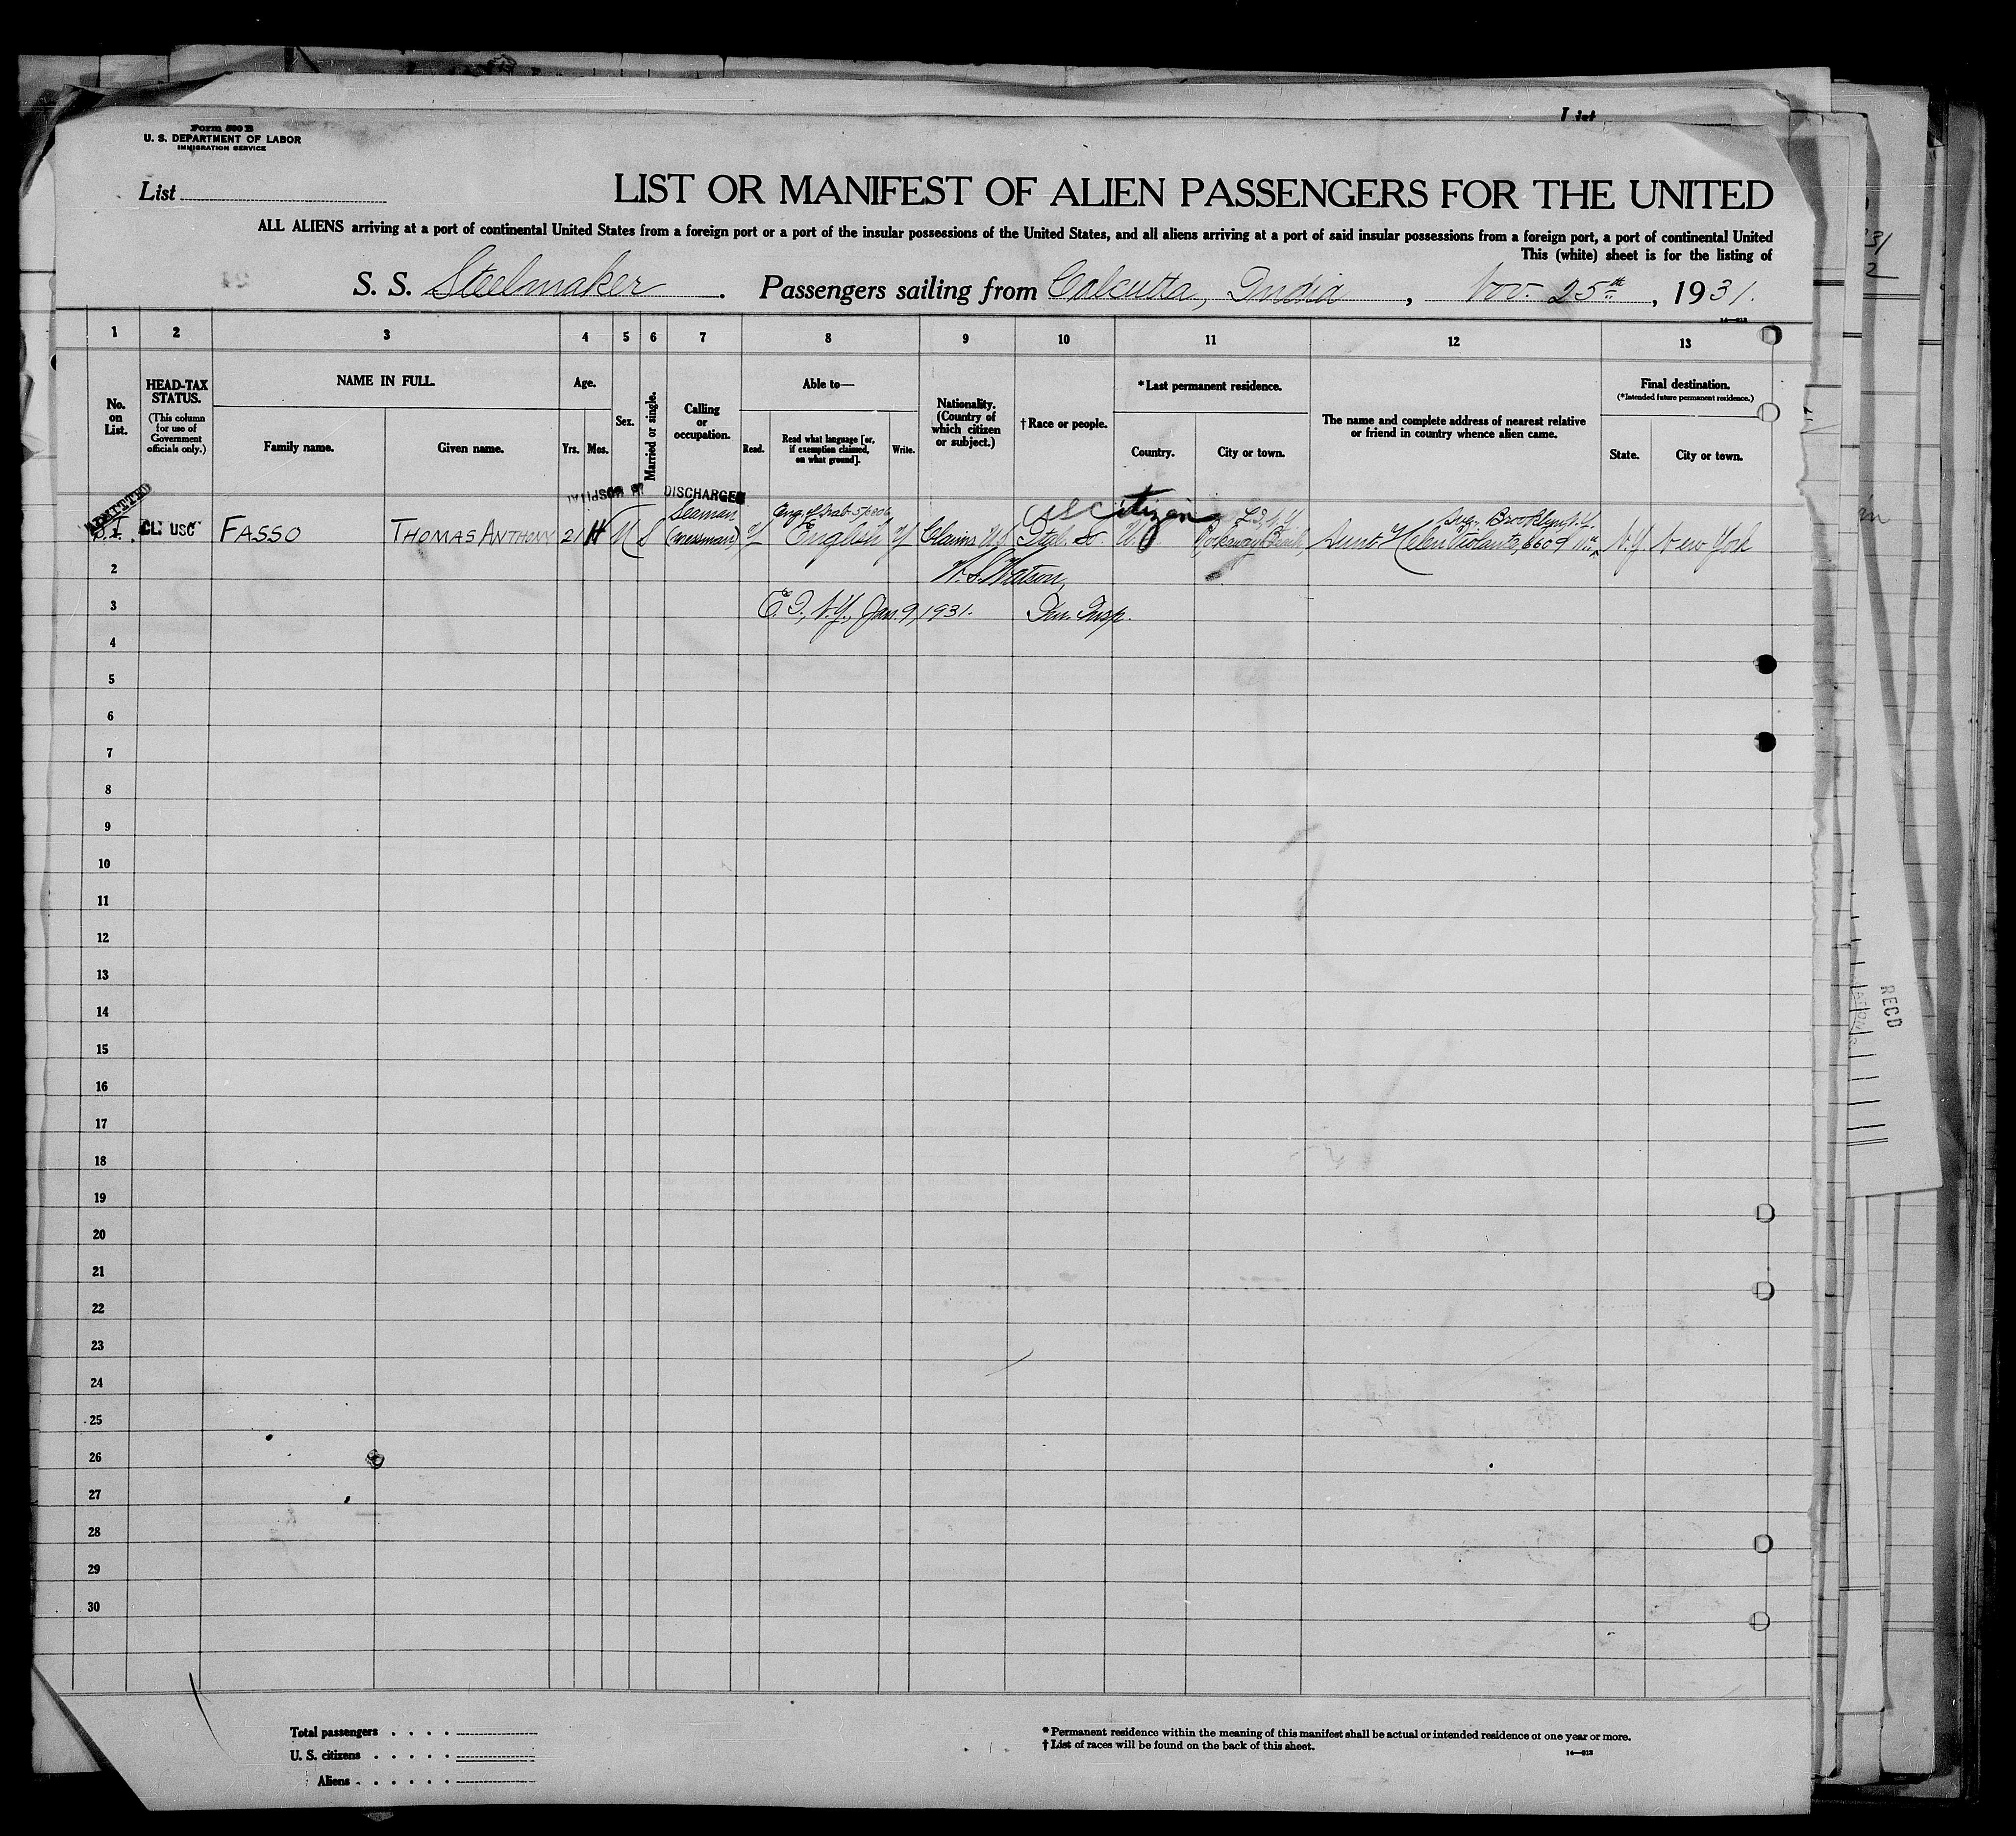 Form 500 B
U. S. DEPARTMENT OF LABOR
IMMIGRATION SERVICE
List
LIST OR MANIFEST OF ALIEN PASSENGERS FOR THE UNITED
ALL ALIENS arriving at a port of continental United States from a foreign port or a port of the insular possessions of the United States, and all aliens arriving at a port of said insular possessions from a foreign port, a port of continental United
This (white) sheet is for the listing of
S. S. Steelmaker. Passengers sailing from Calcutta, India, Nov. 25th, 1931.
1 2 3 4 5 6 7 8 9 10 11 12 13
No. on List.
HEAD-TAX STATUS.
(This column for use of Government officials only.)
NAME IN FULL.
Family name.
Given name.
Age.
Yrs.
Mos.
Sex.
Married or single.
Calling or occupation.
Able to—
Read.
Read what language [or, if exemption claimed, on what ground].
Write.
Nationality. (Country of which citizen or subject.)
† Race or people.
* Last permanent residence.
Country.
City or town.
The name and complete address of nearest relative or friend in country whence alien came.
Final destination.
(*Intended future permanent residence.)
State.
City or town.
ADMITTED
HOSPITAL
DISCHARGED
US citizen
CL. USC
FASSO
THOMAS ANTHONY
21
M
S
Seaman
(messman)
y
English
y
Claims U.S.
Ital. So.
Rockaway Beach
L.I., N.Y.
Aunt Helen Violante, 6609 11th
Ave. Brooklyn N.Y.
N.Y.
New York
2
W. S. Watson,
3
E.I., N.Y., Jan. 9, 1931.
Im. Insp.
4
5
6
7
8
9
10
11
12
13
14
15
16
17
18
19
20
21
22
23
24
25
26
27
28
29
30
RECD
Total passengers
U. S. citizens
Aliens
* Permanent residence within the meaning of this manifest shall be actual or intended residence of one year or more.
† List of races will be found on the back of this sheet.
14—813